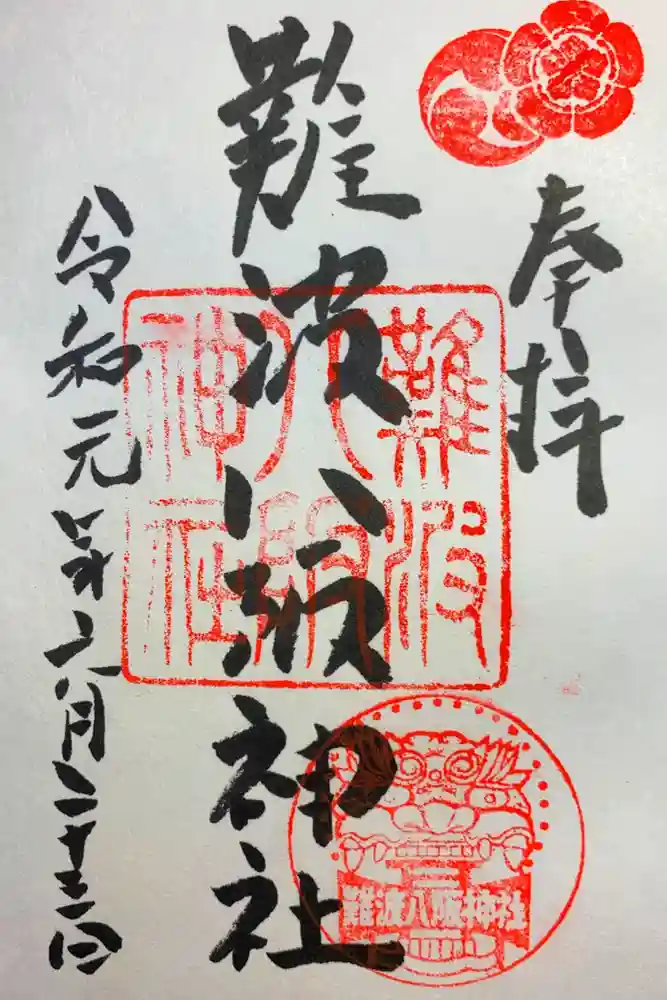 奉拝
難波八阪神社
難波
八阪
神社
難波八阪神社
令和元年六月二十三日